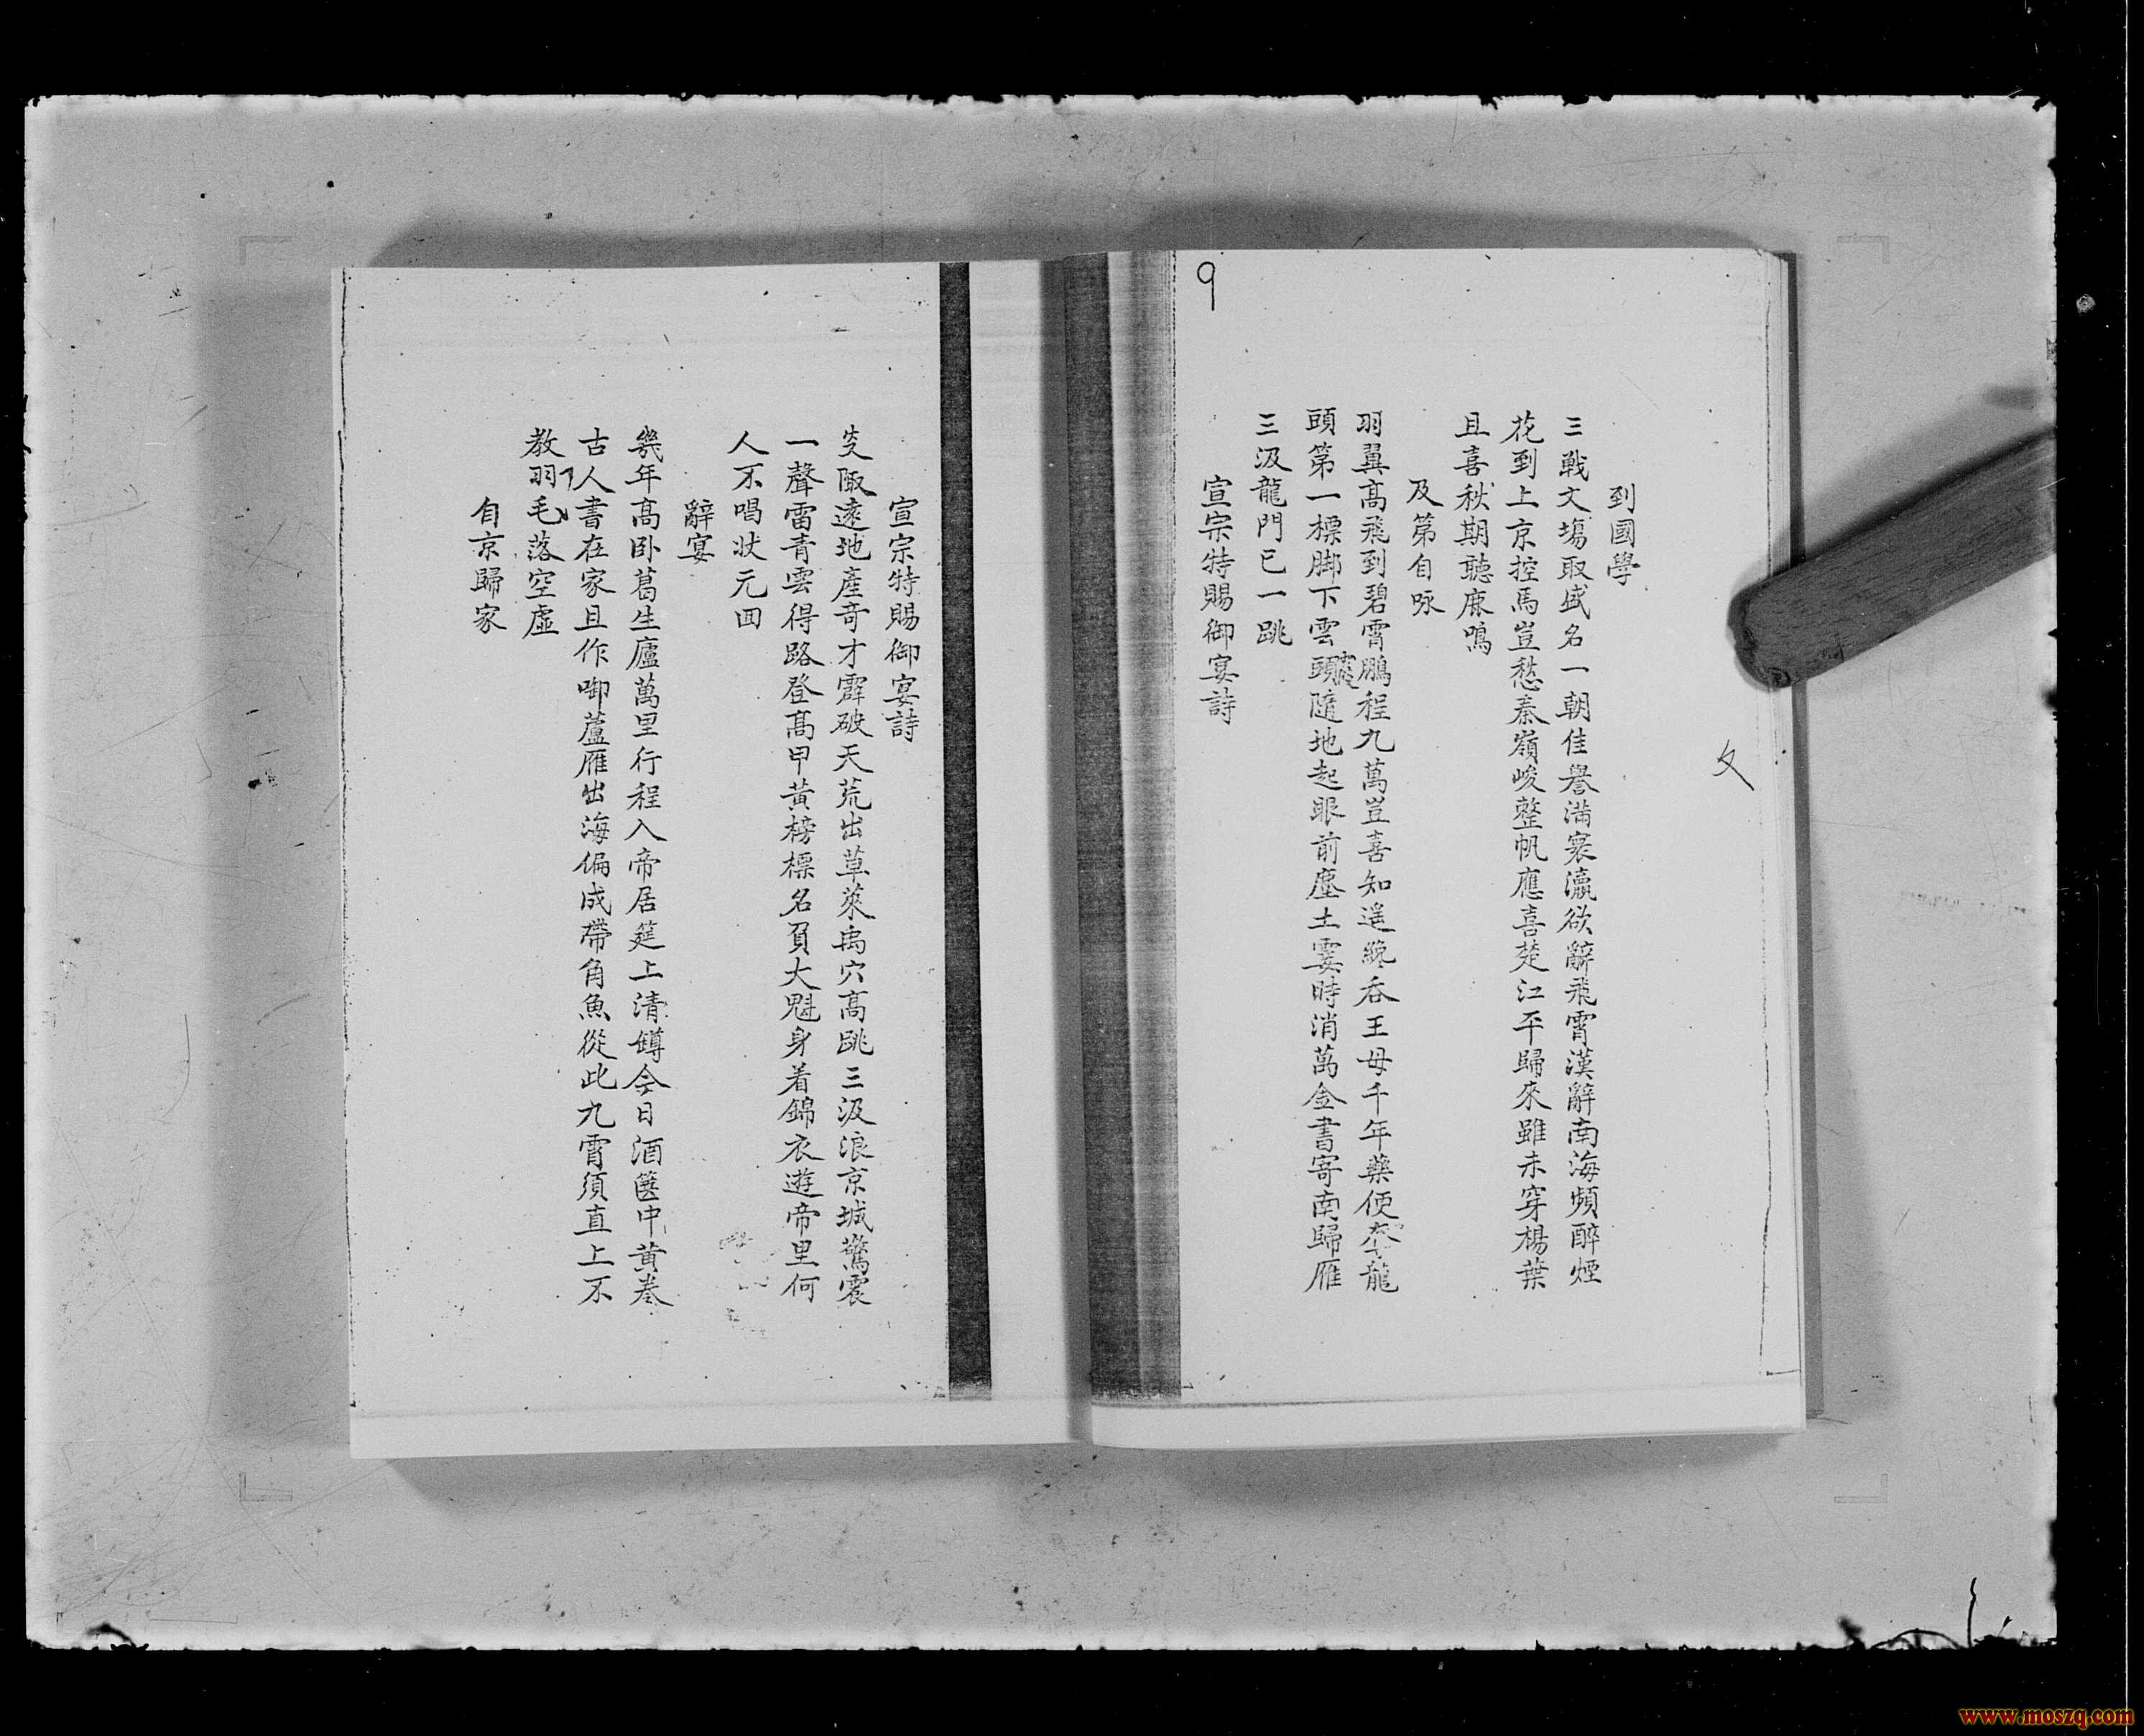 攵
到國學
三戰文塲取盛名一朝佳譽滿寰瀛欲辭飛霄漢辭南海頻醉煙
花到上京控馬豈愁秦嶺峻整帆應喜楚江平歸來雖未穿楊葉
且喜秋期聽鹿鳴
及第自咏
羽翼高飛到碧霄鵬程九萬豈喜知遥纔吞王母千年藥便夲龍
頭第一標脚下雲頭隨地起眼前塵土霎時消萬金書寄南歸雁
三汲龍門已一跳
宣宗特賜御宴詩
9
宣宗特賜御宴詩
炎陬遠地產竒才霹破天荒出草萊禹穴高跳三汲浪京城驚震
一聲雷青雲得路登高甲黃榜標名負大魁身着錦衣遊帝里何
人不唱狀元囬
辭宴
幾年高卧葛生廬萬里行程入帝居筵上清罇今日酒篋中黃卷
古人書在家且作啣蘆雁出海偏成帶角魚從此九霄須直上不
教羽毛落空虛
自京歸家
www.moszq.com